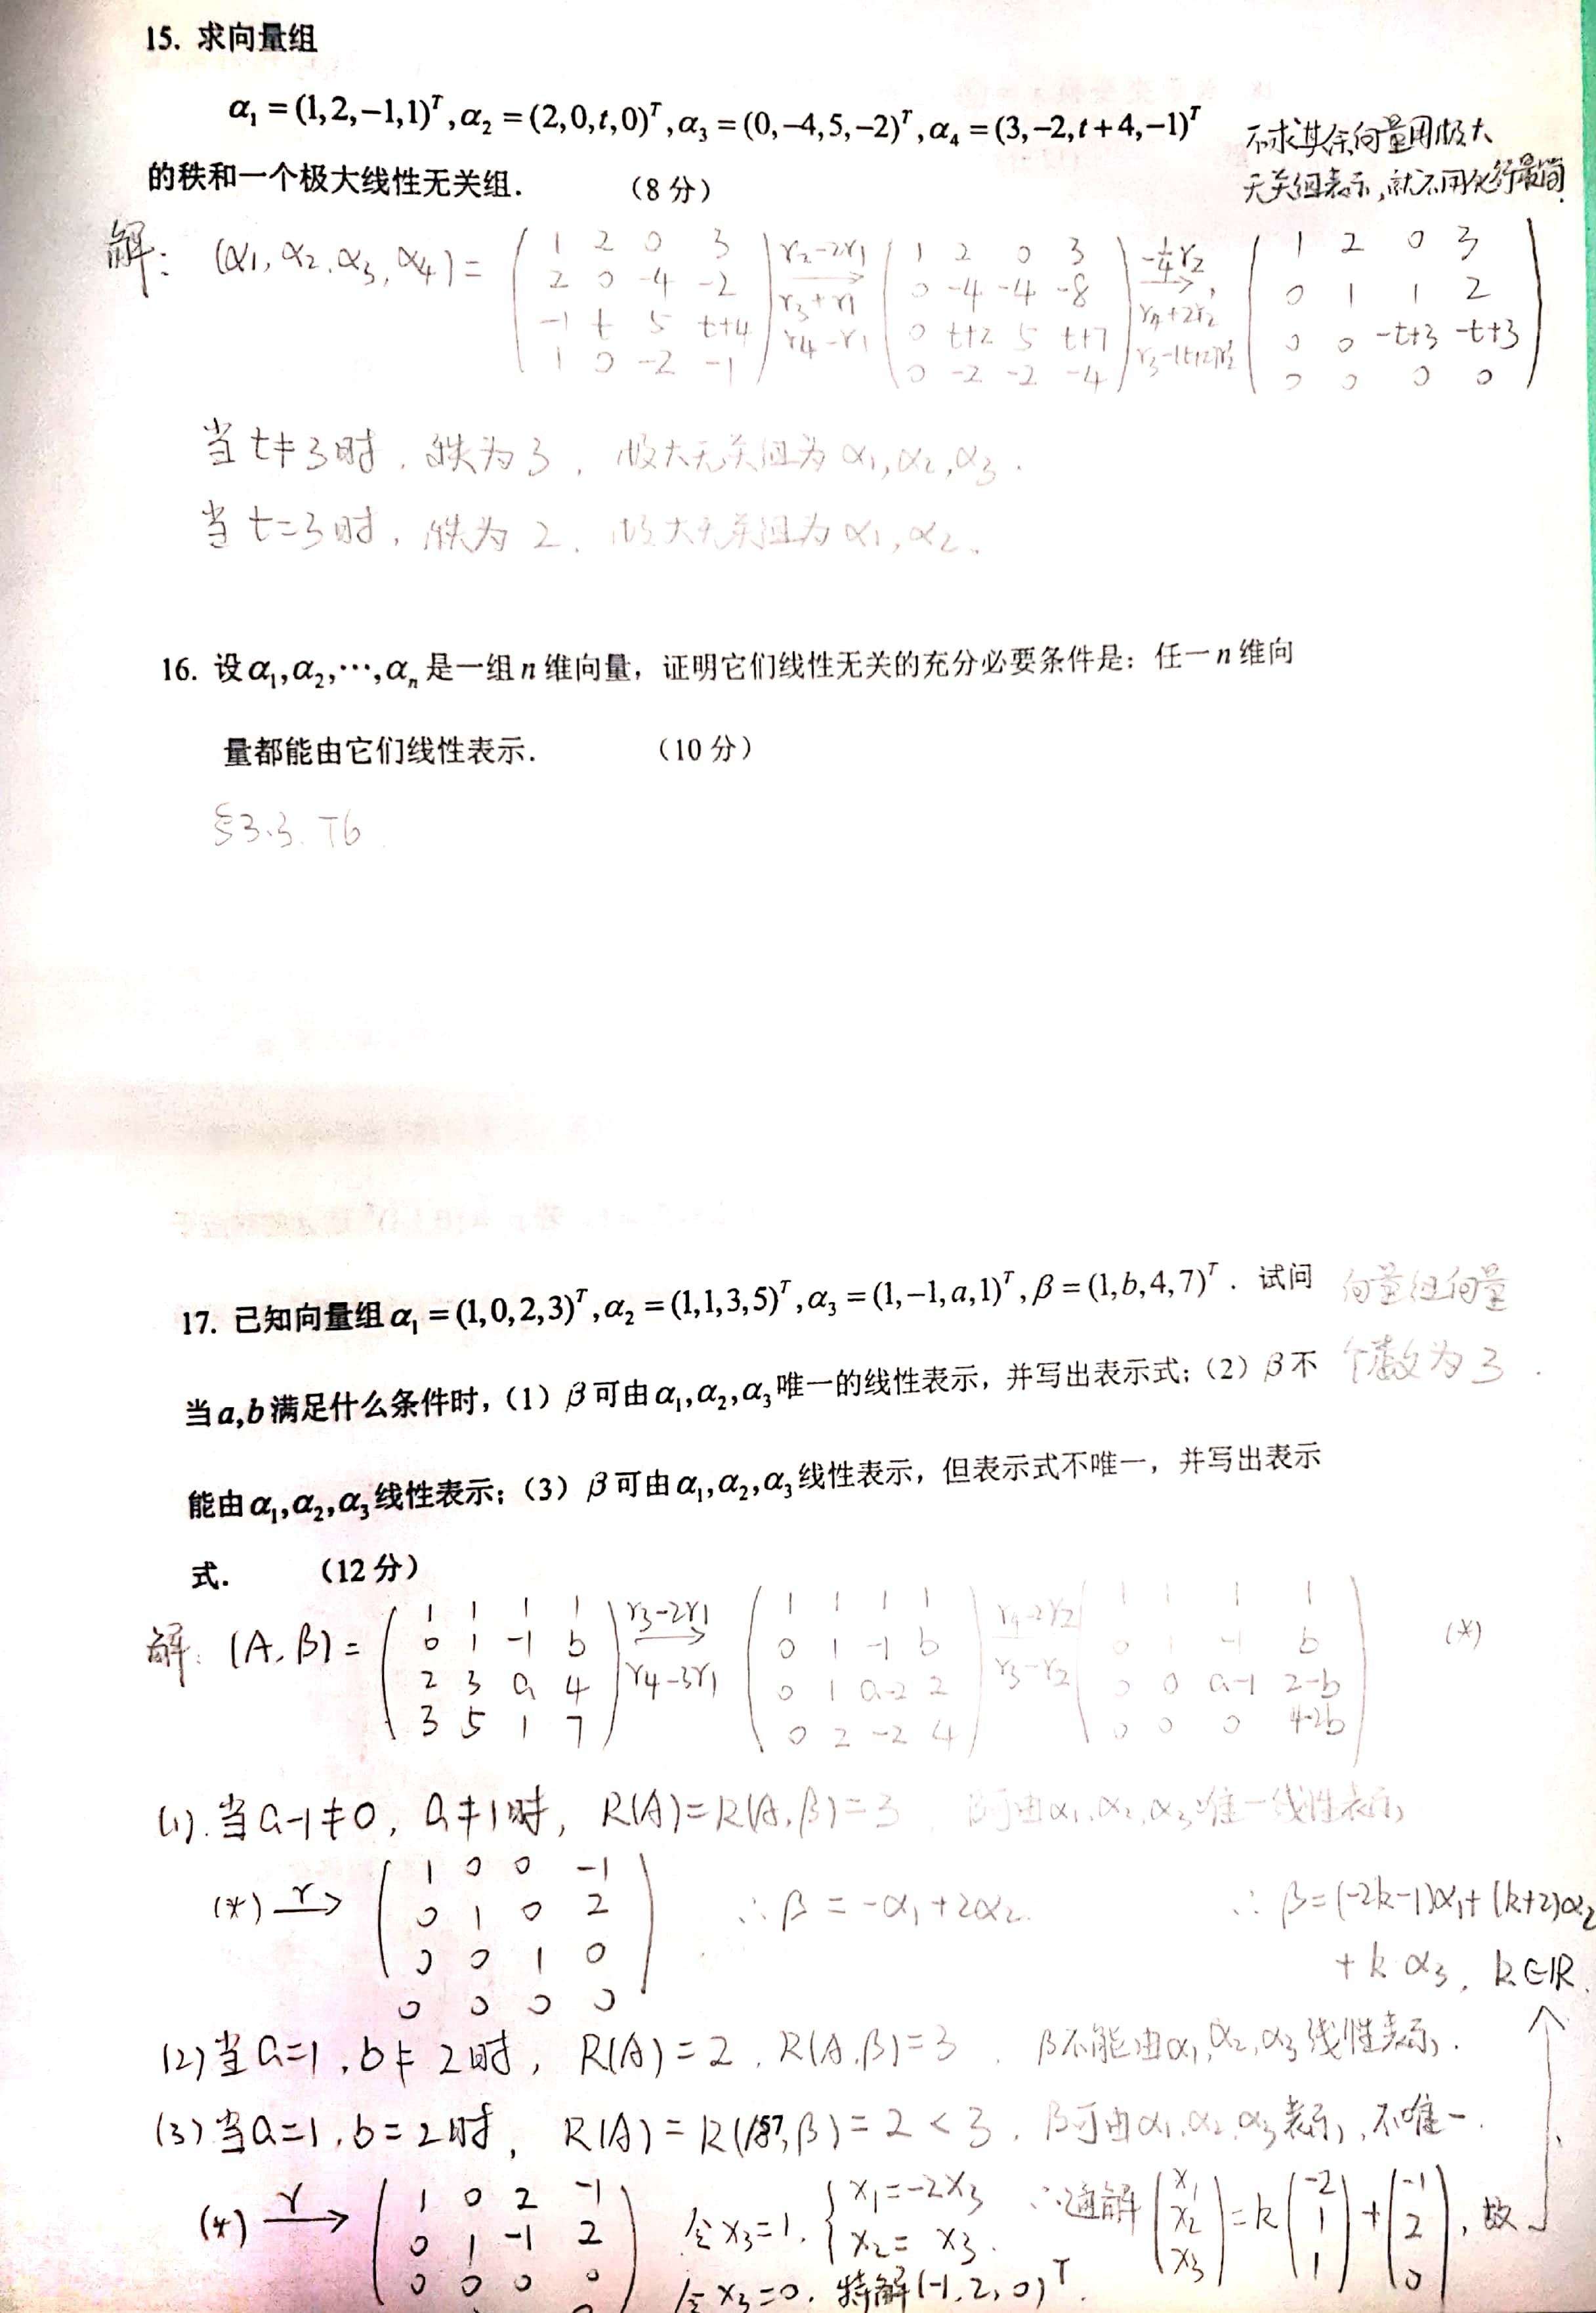 15. 求向量组
α₁ = (1,2,−1,1)ᵀ, α₂ = (2,0,t,0)ᵀ, α₃ = (0,−4,5,−2)ᵀ, α₄ = (3,−2,t+4,−1)ᵀ
不求其余向量用极大
的秩和一个极大线性无关组. (8 分)
无关组表示,就不用化行最简.
解: (α₁, α₂, α₃, α₄) = ( 1 2 0 3 ; 2 0 -4 -2 ; -1 t 5 t+4 ; 1 0 -2 -1 ) r₂-2r₁ r₃+r₁ r₄-r₁ → ( 1 2 0 3 ; 0 -4 -4 -8 ; 0 t+2 5 t+7 ; 0 -2 -2 -4 ) -¼r₂ → r₄+2r₂ r₃-(t+2)r₂ ( 1 2 0 3 ; 0 1 1 2 ; 0 0 -t+3 -t+3 ; 0 0 0 0 )
当 t≠3时, 秩为3, 极大无关组为 α₁,α₂,α₃.
当 t=3时, 秩为2, 极大无关组为 α₁,α₂.
16. 设 α₁,α₂,⋯,αₙ 是一组 n 维向量，证明它们线性无关的充分必要条件是：任一 n 维向
量都能由它们线性表示. （10 分）
§3.3. T6
17. 已知向量组 α₁ = (1,0,2,3)ᵀ, α₂ = (1,1,3,5)ᵀ, α₃ = (1,−1,a,1)ᵀ, β = (1,b,4,7)ᵀ. 试问
向量组向量
当 a,b 满足什么条件时,（1）β 可由 α₁,α₂,α₃ 唯一的线性表示，并写出表示式;（2）β 不
个数为3.
能由 α₁,α₂,α₃ 线性表示;（3）β 可由 α₁,α₂,α₃ 线性表示，但表示式不唯一，并写出表示
式. （12 分）
解: (A,β) = ( 1 1 1 1 ; 0 1 -1 b ; 2 3 a 4 ; 3 5 1 7 ) r₃-2r₁ → r₄-3r₁ ( 1 1 1 1 ; 0 1 -1 b ; 0 1 a-2 2 ; 0 2 -2 4 ) r₄-2r₂ r₃-r₂ ( 1 1 1 1 ; 0 1 -1 b ; 0 0 a-1 2-b ; 0 0 0 4-2b ) (*)
(1). 当 a-1≠0, a≠1时, R(A)=R(A,β)=3, β可由α₁,α₂,α₃唯一线性表示,
(*) r→ ( 1 0 0 -1 ; 0 1 0 2 ; 0 0 1 0 ; 0 0 0 0 ) ∴ β = -α₁+2α₂.
∴ β=(-2k-1)α₁+(k+2)α₂
+ k α₃, k∈R.
(2) 当 a=1, b≠2时, R(A)=2, R(A,β)=3, β不能由α₁,α₂,α₃线性表示.
(3) 当 a=1, b=2时, R(A)=R(A,β)=2<3, β可由α₁,α₂,α₃表示, 不唯一.
57
(*) r→ ( 1 0 2 -1 ; 0 1 -1 2 ; 0 0 0 0 ; 0 ) 令x₃=1, { x₁=-2x₃ x₂= x₃. ∴通解 ( x₁ x₂ x₃ ) = k ( -2 1 1 ) + ( -1 2 0 ), 故
令x₃=0, 特解(-1,2,0)ᵀ.